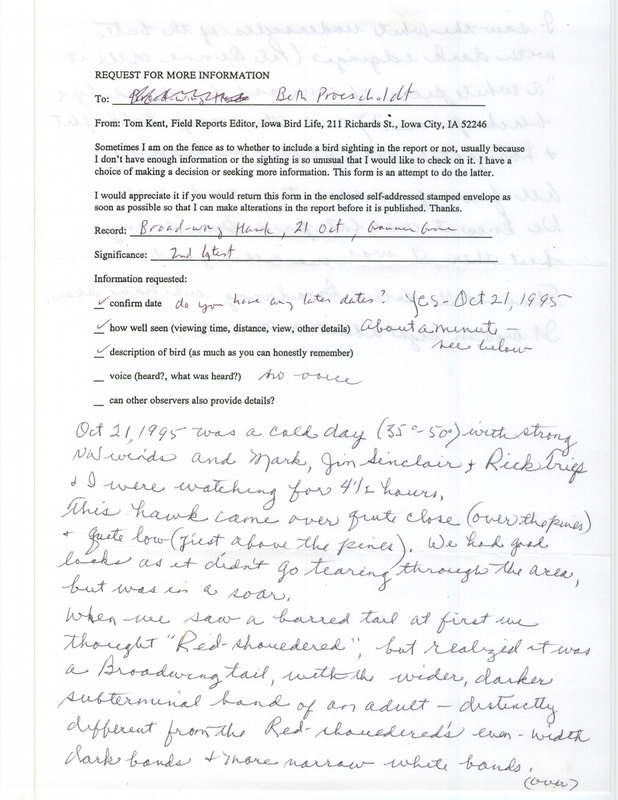 REQUEST FOR MORE INFORMATION
To: Beth Proescholdt
From: Tom Kent, Field Reports Editor, Iowa Bird Life, 211 Richards St., Iowa City, IA 52246
Sometimes I am on the fence as to whether to include a bird sighting in the report or not, usually because
I don't have enough information or the sighting is so unusual that I would like to check on it. I have a
choice of making a decision or seeking more information. This form is an attempt to do the latter.
I would appreciate it if you would return this form in the enclosed self-addressed stamped envelope as
soon as possible so that I can make alterations in the report before it is published. Thanks.
Record: Broad-wing Hawk, 21 Oct, Grammer Grove
Significance: 2nd latest
Information requested:
✓ confirm date do you have any later dates? Yes - Oct 21, 1995
✓ how well seen (viewing time, distance, view, other details) About a minute -
see below
✓ description of bird (as much as you can honestly remember)
_ voice (heard?, what was heard?) no voice
_ can other observers also provide details?
Oct 21, 1995 was a cold day (35° - 50°) with strong
NW winds and Mark, Jim Sinclair & Rick Trips
& I were watching for 4 1/2 hours.
This hawk came over quite close (over the pines)
& quite low (just above the pines). We had good
looks as it didn't go tearing through the area,
but was in a soar.
When we saw a barred tail at first we
thought "Red-shouedered", but realized it was
a Broadwing tail, with the wider, darker
subterminal band of an adult - distinctly
different from the Red-shouedered's even-width
dark bands & more narrow white bands.
(over)